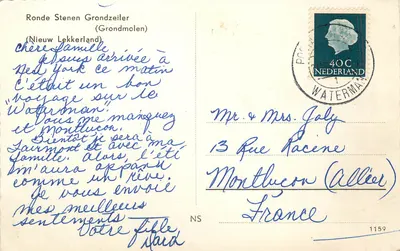 Ronde Stenen Grondzeiler
(Grondmolen)
(Nieuw Lekkerland)
chère famille
je suis arrivée à
New York ce matin
c'était un bon
"voyage sur le
Waterman".
Vous me manquez
et Montlucon.
Bientôt je serai à
Fairmont et avec ma
famille. Alors, l'été
m'aura
comme un rêve.
Je vous envoie
mes meilleurs
sentements
Votre fille,
40C
NEDERLAND
WATERMA
Mr. & Mrs. Joly
13 Rue Racine
Montlucon (Allier)
France
NS
1159